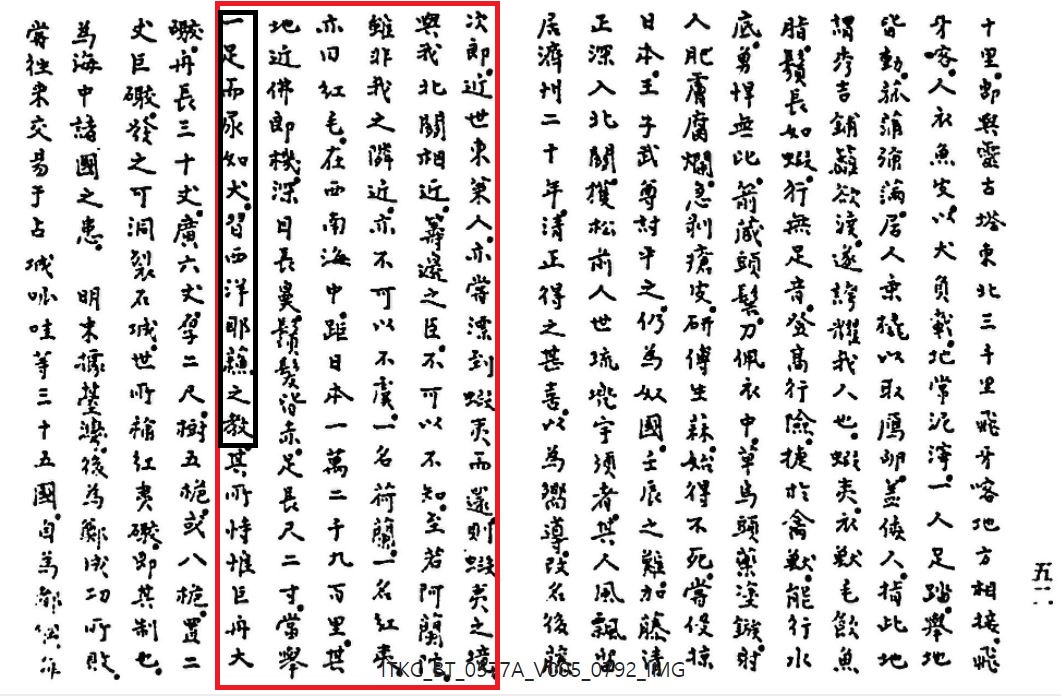 五一二
十里部與靈古塔東北三千里飛牙喀地方相接飛
牙喀人衣魚皮以犬負載地常泥濘一人足踏擧地
皆動菰蒲彌滿居人乘艇以取鴈卵盖倭人指此地
謂秀吉鋪雖欲渡遂誇耀我人也蝦夷衣獸毛飮魚
脂鬚長如蝦行無足音登高行險捷於禽獸能行水
底勇悍無比箭蔵頭髻刀佩衣中草烏頭藥塗鏃射
人肥膚腐爛急剥瘡皮研傅生蒜始得不死嘗侵掠
日本王子武尊討平之仍為奴國壬辰之難加藤清
正深入北關獲松前人世琉兜宇須者其人風飄嘗
居濟州二十年清正得之甚喜以為嚮導改名後藤
次郎近世東萊人亦嘗漂到蝦夷而還則蝦夷之境
與我北關相近籌邊之臣不可以不知至若阿蘭陀
雖非我之隣近亦不可以不虞一名荷蘭一名紅夷
亦曰紅毛在西南海中距日本一萬二千九百里其
地近佛郎機深目長鼻鬚髮皆赤足長尺二寸常擧
一足而尿如犬習西洋耶蘇之教其所恃惟巨舟大
礮舟長三十丈廣六丈厚二尺樹五桅或八桅置二
丈巨礮發之可洞裂石城世所稱紅夷礮即其制也
為海中諸國之患 明末據臺灣後為鄭成功所敗
嘗往来交易于占城咖哇等三十五國自為都
ITKC_BT_0577A_V005_0792_IMG